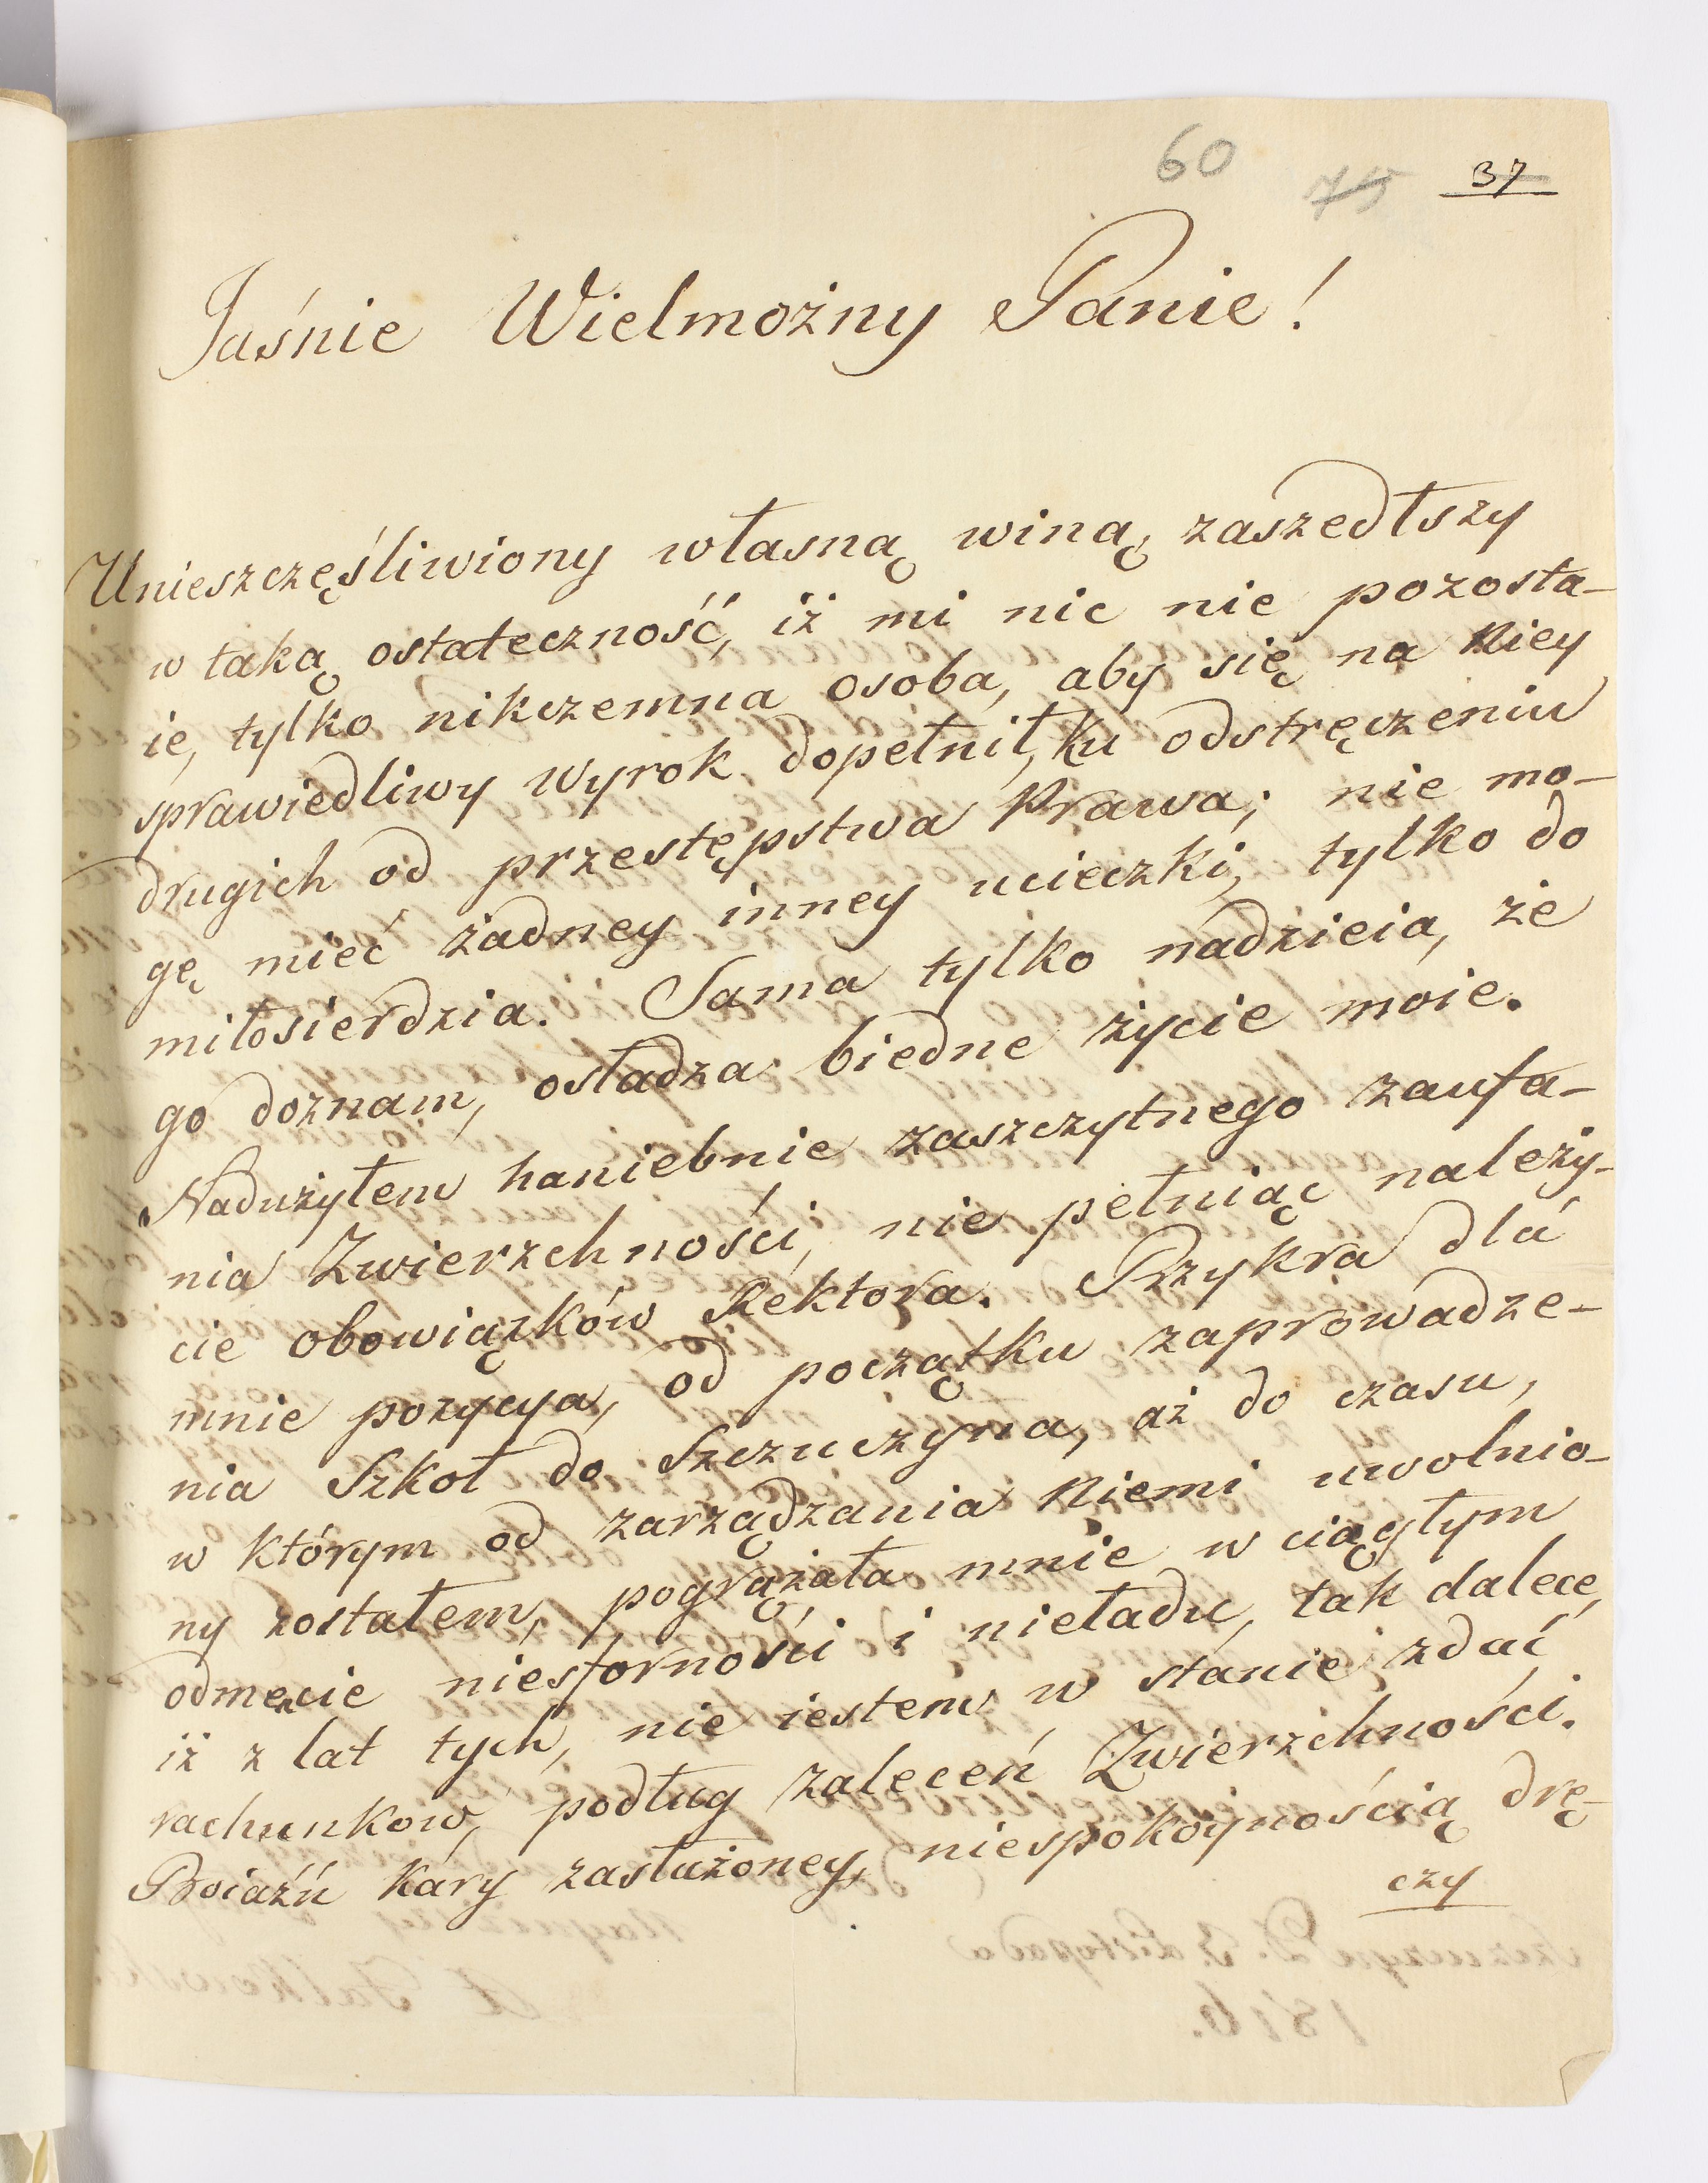 60
75
37
Jaśnie Wielmożny Panie!
Unieszczęśliwiony własną winą, zaszedłszy
w taką ostateczność, iż mi nic nie pozosta-
ie, tylko nikczemna osoba, aby się na niey
sprawiedliwy wyrok dopełnił, ku odstręczeniu
drugich od przestępstwa prawa; nie mo-
gę mieć żadney inney ucieczki, tylko do
miłosierdzia. Sama tylko nadzieia, że
go doznam, osładza biedne życie moie.
Nadużyłem haniebnie zaszczytnego zaufa-
nia Zwierzchności, nie pełniąc należy-
cie obowiązków Rektora. Przykra dla
mnie pozycya, od początku zaprowadze-
nia Szkół do Szczuczyna, aż do czasu,
w którym od zarządzania niemi uwolnio-
ny zostałem, pogrążała mnie w ciągłym
odmęcie niesforności i nieładu, tak dalece,
iż z lat tych, nie iestem w stanie zdać
rachunkow, podług zaleceń Zwierzchności.
Boiaźń kary zasłużoney, niespokoynością drę-
czy